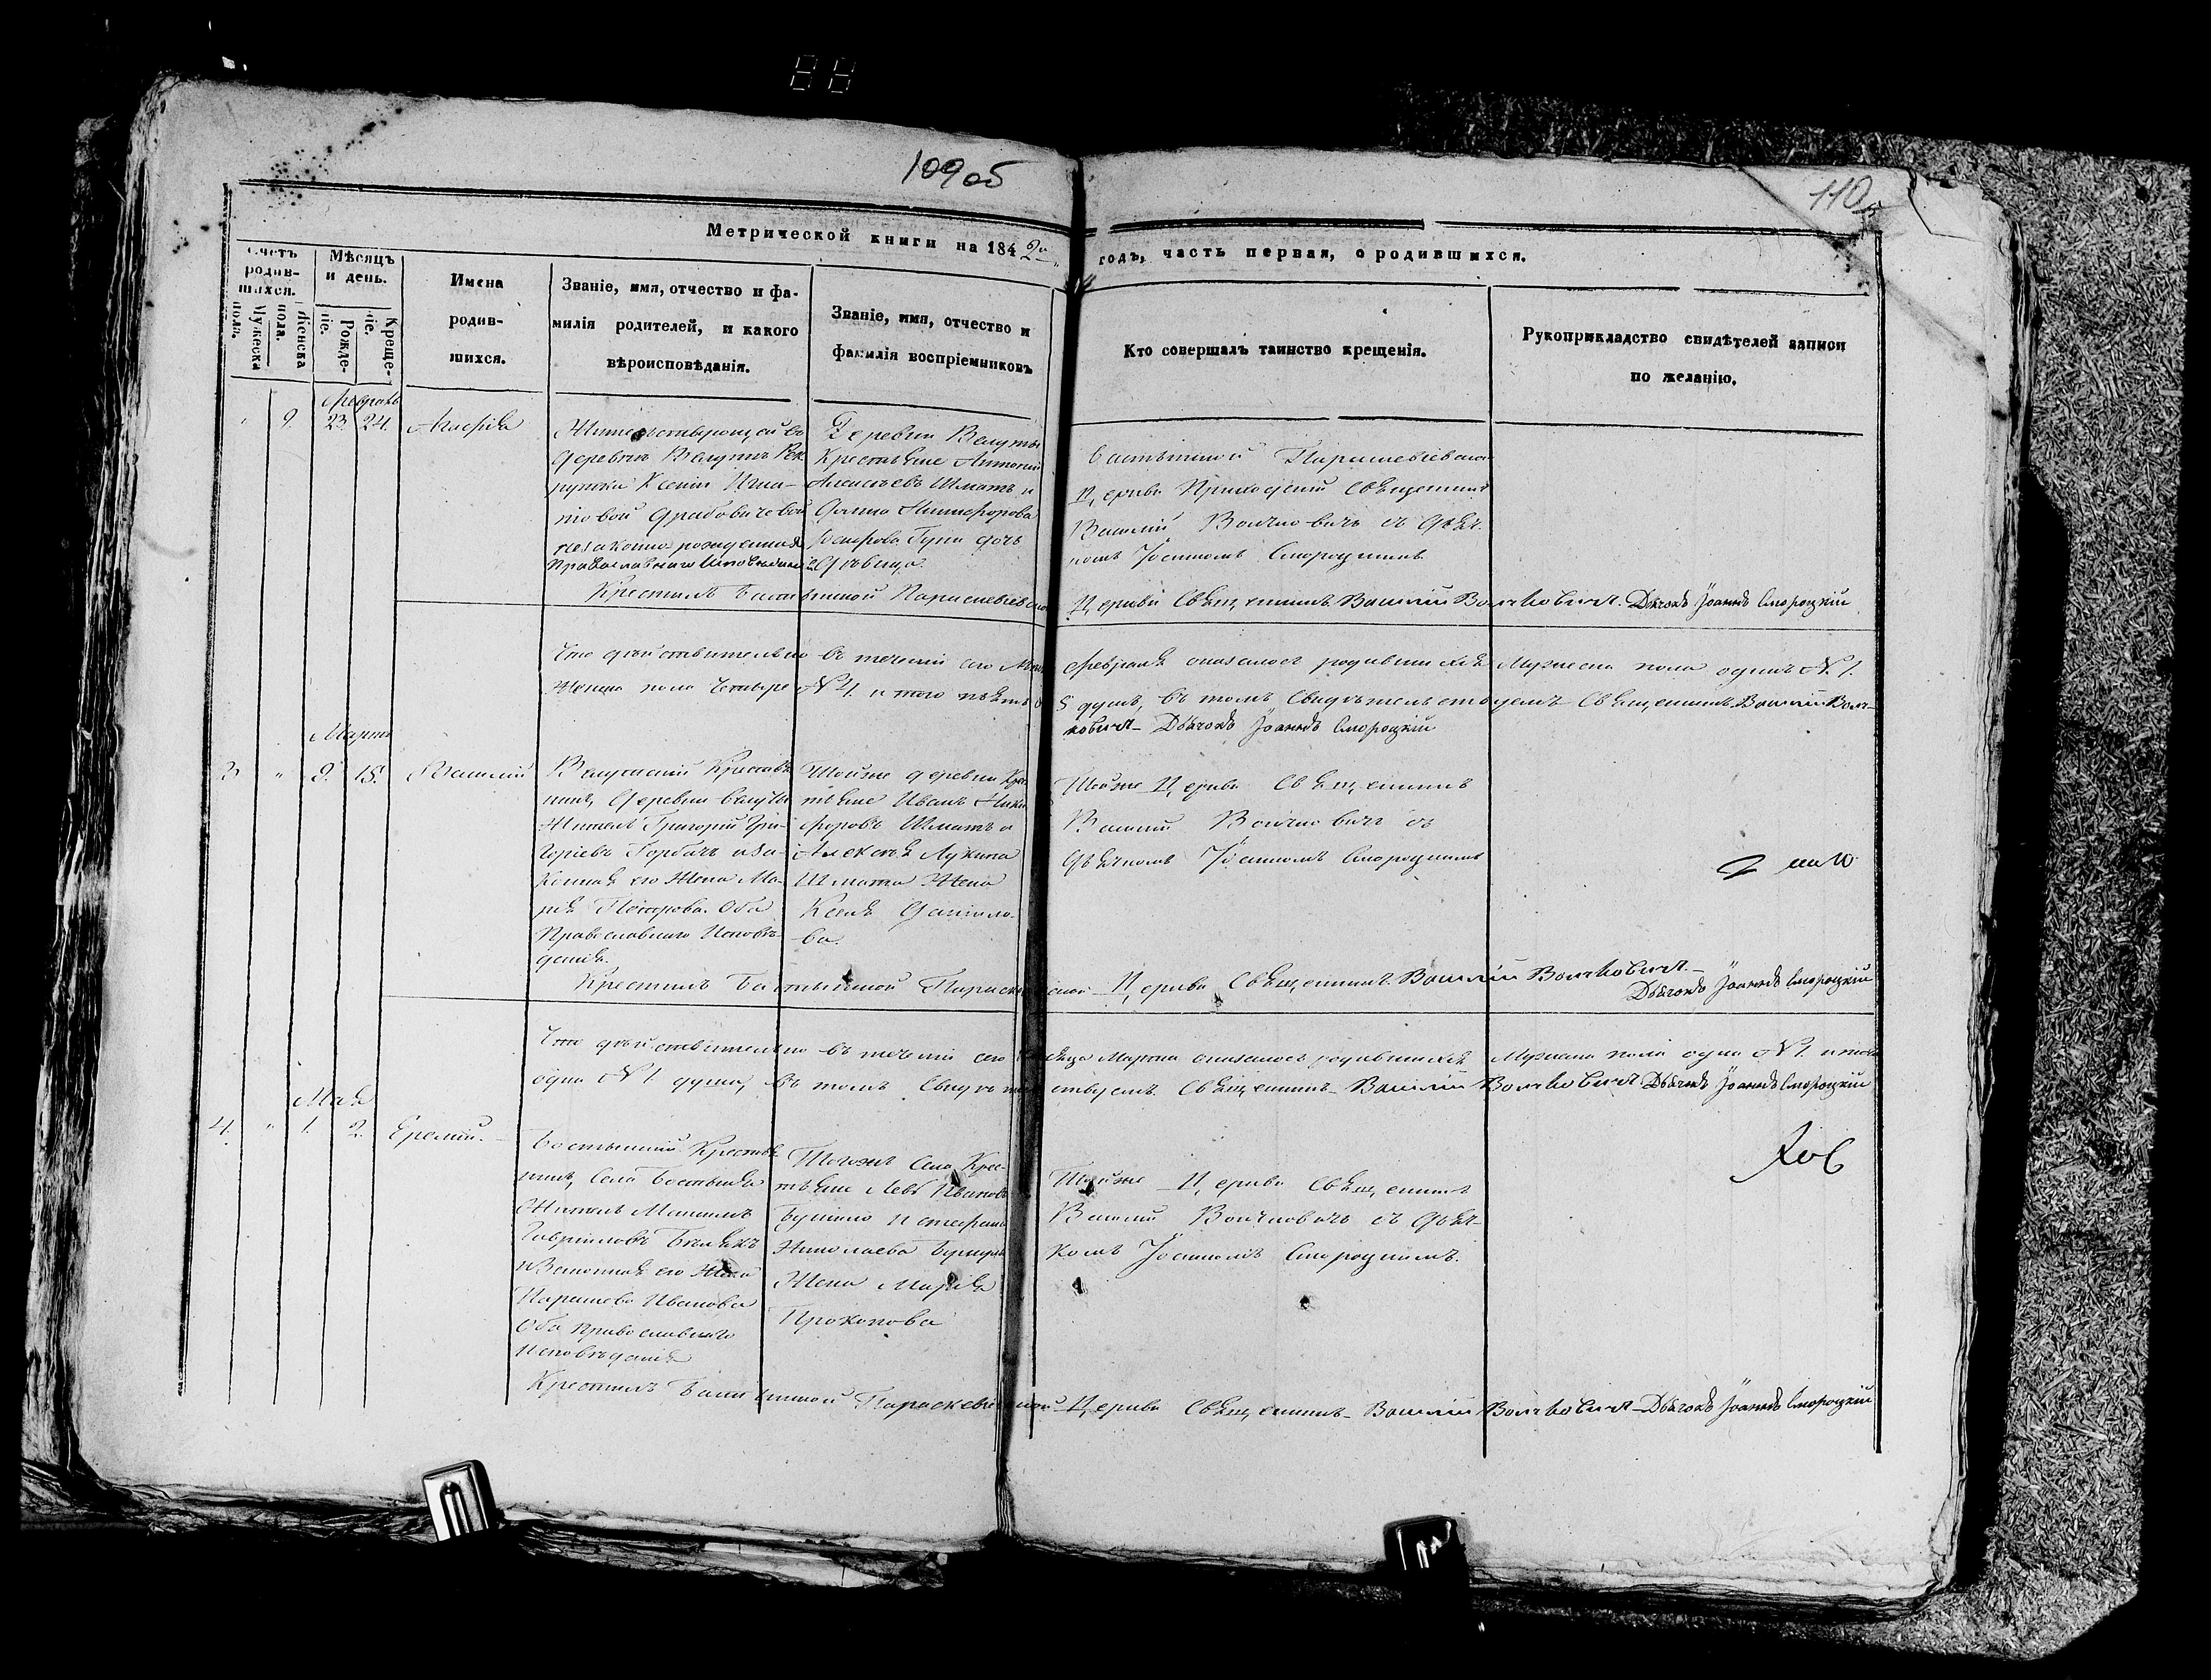 88
109об
110
Метрической книги на 1842й
годъ, часть первая, о родившихся.
Счетъ родив-шихся.
Мужеска пола.
Женска пола.
Мѣсяцъ и день.
Рожде-ніе.
Креще-ніе.
Имена
родив-
шихся.
Званіе, имя, отчество и фа-
милія родителей, и какого
вѣроисповѣданія.
Званіе, имя, отчество и
фамилія воспріемниковъ
Кто совершалъ таинство крещенія.
Рукоприкладство свидѣтелей записи
по желанію.
Февраль
9. 23. 24.
деревнѣ Велутѣ
рутки Ксеніи Игна-
товой Драбовичевой
незаконно рожденная
Православнаго Исповѣданія
Деревни Велуты
Крестьяне Антоній
Алексѣевъ Шматъ и
Никифорова
дочь
Дѣвица.
Бастынской Параскевіевской
Церкви Приходскій Священникъ
Василій Волчковичъ съ Дьяч-
комъ Іоанномъ Смороцкимъ
Крестилъ Бастынской Параскевіевской Церкви Священникъ Василій Волчковичъ. Дьячокъ Іоаннъ Смороцкій
Что дѣйствительно въ теченіи сего Февраля оказалось родившихся Мужеска пола одинъ N 1.
Женска пола Четыре N 4. и того пять 5 душъ, въ томъ Свидѣтельствуемъ Священникъ Василій Волч-
ковичъ Дьячокъ Іоаннъ Смороцкій
Мартъ
9. 15. Василій
Велутскій Крестья-
нинъ, Деревни Велуты
Житель Григорій Гри-
горіевъ Горбачъ и За-
конная его Жена Ма-
рія Петрова. Оба
Православнаго Исповѣ-
данія.
Тойже деревни Крес-
тьяне Иванъ Ники-
форовъ Шматъ и
Алексѣя Лукина
Шмата Жена
Ксенія Данило-
ва.
Тойже Церкви Священникъ
Василій Волчковичъ съ
Дьячкомъ Іоанномъ Смороцкимъ
Крестилъ Бастынской Параскевіевской Церкви Священникъ Василій Волчковичъ.
Дьячокъ Іоаннъ Смороцкій
Что дѣйствительно въ теченіи сего Мѣсяца Марта оказалось родившихся Мужеска пола одна N 1. и того
одна N 1. душа, въ томъ Свидѣтельствуемъ. Священникъ Василій Волчковичъ Дьячокъ Іоаннъ Смороцкій
Мая
4. " 1. 2. Еремій.
Бостынскій Крестья-
нинъ, Села Бостыня
Житель Максимъ
Гавриловъ
и Законная его Жена
Параскева Иванова
Оба Православнаго
Исповѣданія
Тогожъ Села Крес-
тьяне Левъ Ивановъ
и Стефана
Николаева
Жена Марія
Прокопова
Тойже Церкви Священникъ
Василій Волчковичъ съ Дьяч-
комъ Іоанномъ Смороцкимъ.
Крестилъ Бастынской Параскевіевской Церкви Священникъ Василій Волчковичъ Дьячокъ Іоаннъ Смороцкій